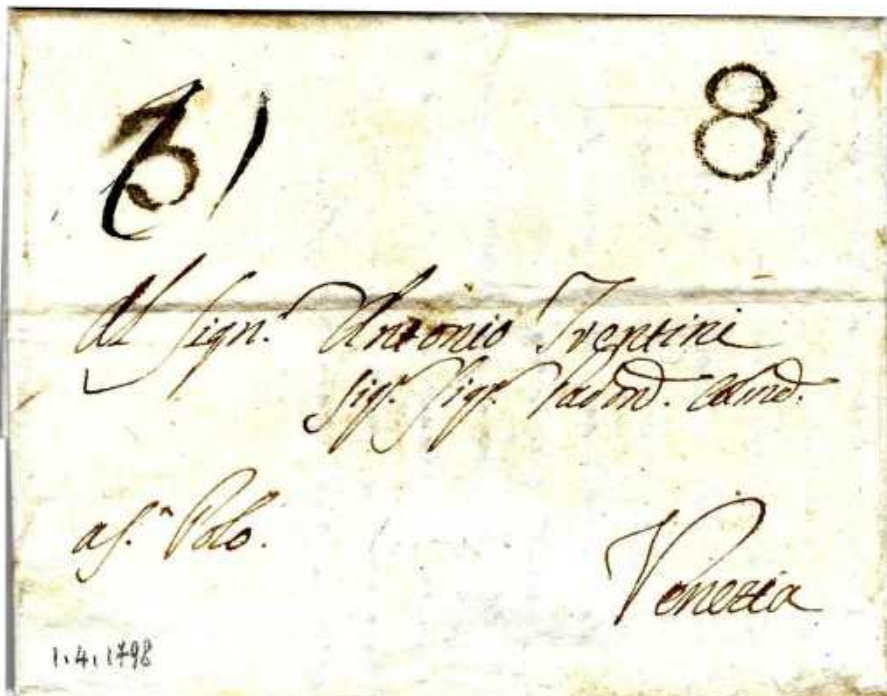 8
Al Sign.r Antonio Trentini
Sig.r Sig.r Padrōn. Colend.
a S.n Polo.
Venezia
1.4.1798